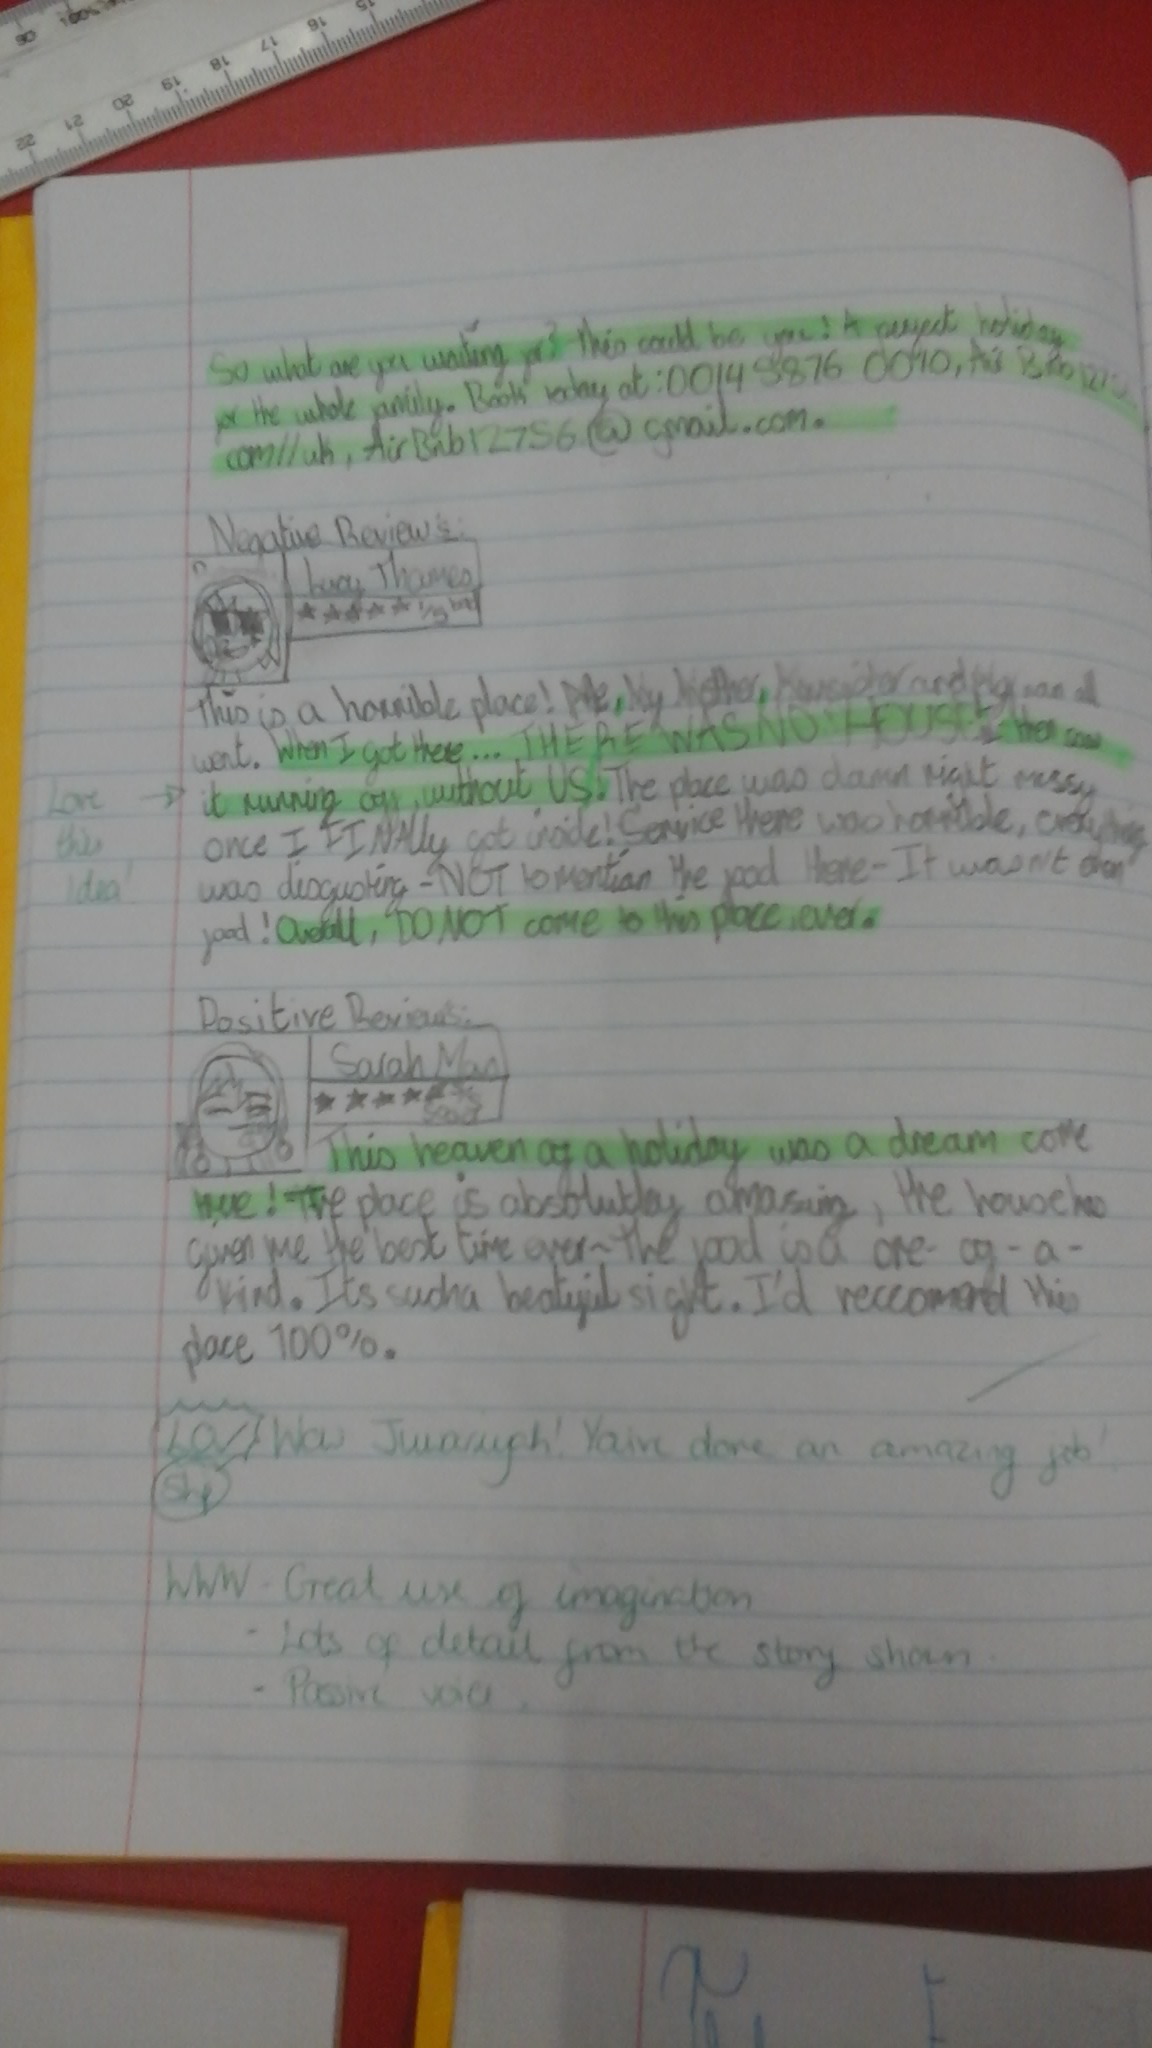 So what are you waiting for? This could be you! A perfect holiday
for the whole family. Book today at: 0014 9876 0090, Air BnB
com//uk, AirBnb12756@gmail.com.
Negative Reviews:
Lucy Thames
This is a horrible place! Me, My Mother, and all
went. When I got there... THERE WAS NO HOUSE! I then saw
it running off, without US! The place was damn right messy
Love
this
idea!
once I FINALLy got inside! Service there was horrible, everything
was disgusting - NOT to mention the food there - It wasn't even
food! Overall, DO NOT come to this place, ever.
Positive Reviews:
Sarah Mac
This heaven of a holiday was a dream come
true! The place is absolutley amasing, the house has
given me the best time ever - The food is a one-of-a-
kind. Its such a beatiful sight. I'd reccomend this
place 100%.
Wow You've done an amazing job!
WWW - Great use of imagination
- Lots of detail from the story shown.
- Passive voice.
15 16 17 18 19 20 21 22